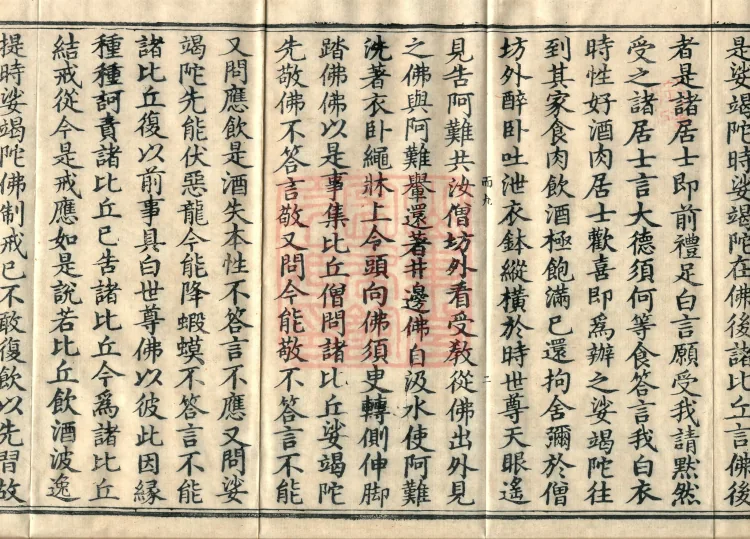 是娑竭陁時娑竭陁在佛後諸比丘言佛後
者是諸居士即前禮足白言願受我請黙然
受之諸居士言大德須何等食答言我白衣
時性好酒肉居士歡喜即爲辦之娑竭陁往
到其家食肉飲酒極飽滿已還拘舍彌於僧
坊外醉卧吐泄衣鉢縱横於時世尊天眼遙
而九
二
見告阿難共汝僧坊外看受教從佛出外見
之佛與阿難轝還著井邊佛自汲水使阿難
洗著衣卧繩牀上令頭向佛須臾轉側伸脚
踏佛佛以是事集比丘僧問諸比丘娑竭陁
先敬佛不答言敬又問今能敬不答言不能
又問應飲是酒失本性不答言不應又問娑
竭陁先能伏惡龍今能降蝦蟆不答言不能
諸比丘復以前事具白世尊佛以彼此因緣
種種訶責諸比丘已告諸比丘今爲諸比丘
結戒從今是戒應如是說若比丘飲酒波逸
提時娑竭陁佛制戒已不敢復飲以先習故